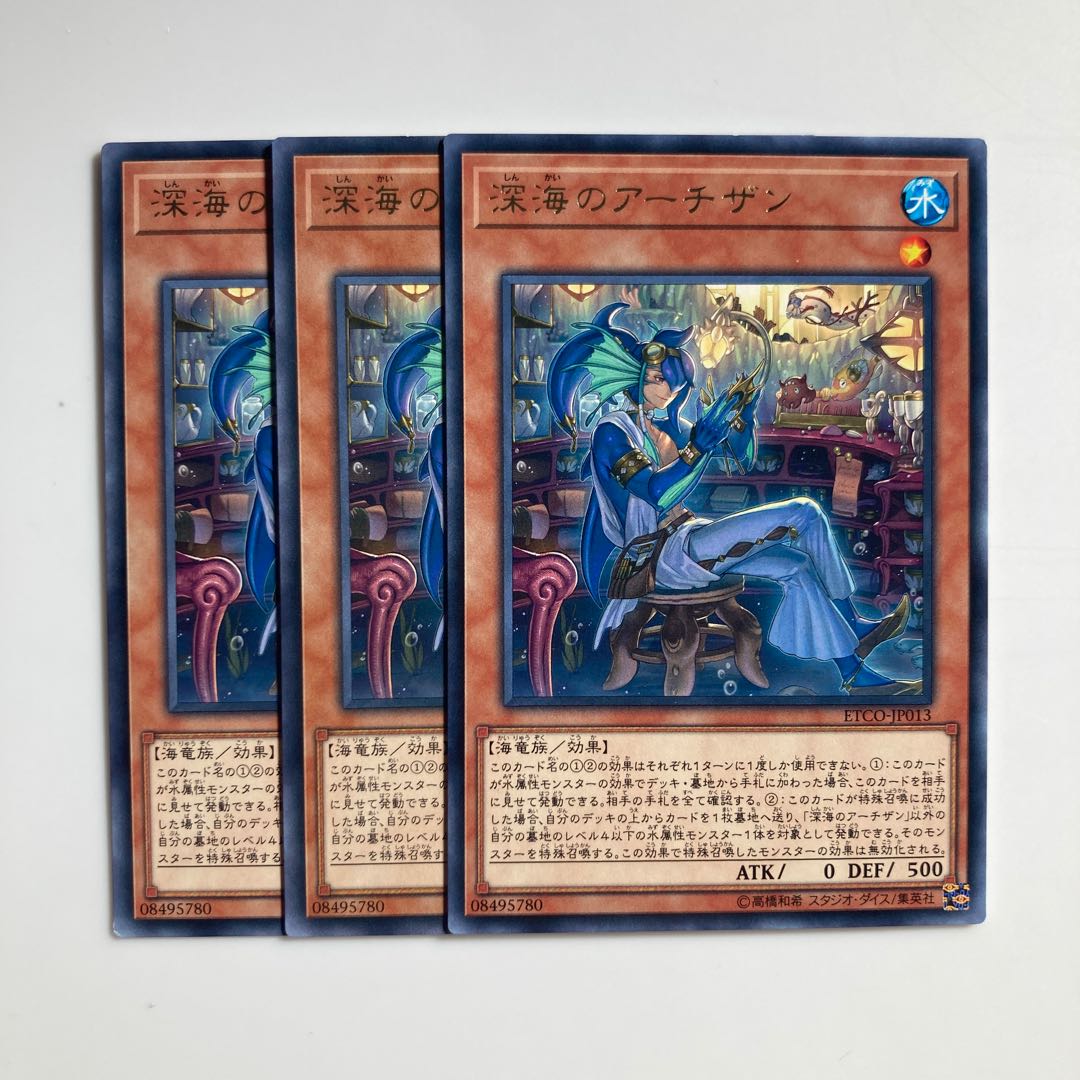 深海の
深海の
深海のアーチザン
水
ETCO-JP013
【海竜族/効果】
このカード名の①②の
が水属性モンスターの
に見せて発動できる。
した場合、自分のデッキ
自分の墓地のレベル4
スターを特殊召喚する
08495780
【海竜族/効果】
このカード名の①②の
が水属性モンスターの
に見せて発動できる。
した場合、自分のデッキ
自分の墓地のレベル4以
スターを特殊召喚する。
08495780
【海竜族/効果】
このカード名の①②の効果はそれぞれ1ターンに1度しか使用できない。①:このカード
が水属性モンスターの効果でデッキ・墓地から手札に加わった場合、このカードを相手
に見せて発動できる。相手の手札を全て確認する。②:このカードが特殊召喚に成功
した場合、自分のデッキの上からカードを1枚墓地へ送り、「深海のアーチザン」以外の
自分の墓地のレベル4以下の水属性モンスター1体を対象として発動できる。そのモン
スターを特殊召喚する。この効果で特殊召喚したモンスターの効果は無効化される。
ATK/ 0 DEF/ 500
08495780
©高橋和希 スタジオ・ダイス/集英社